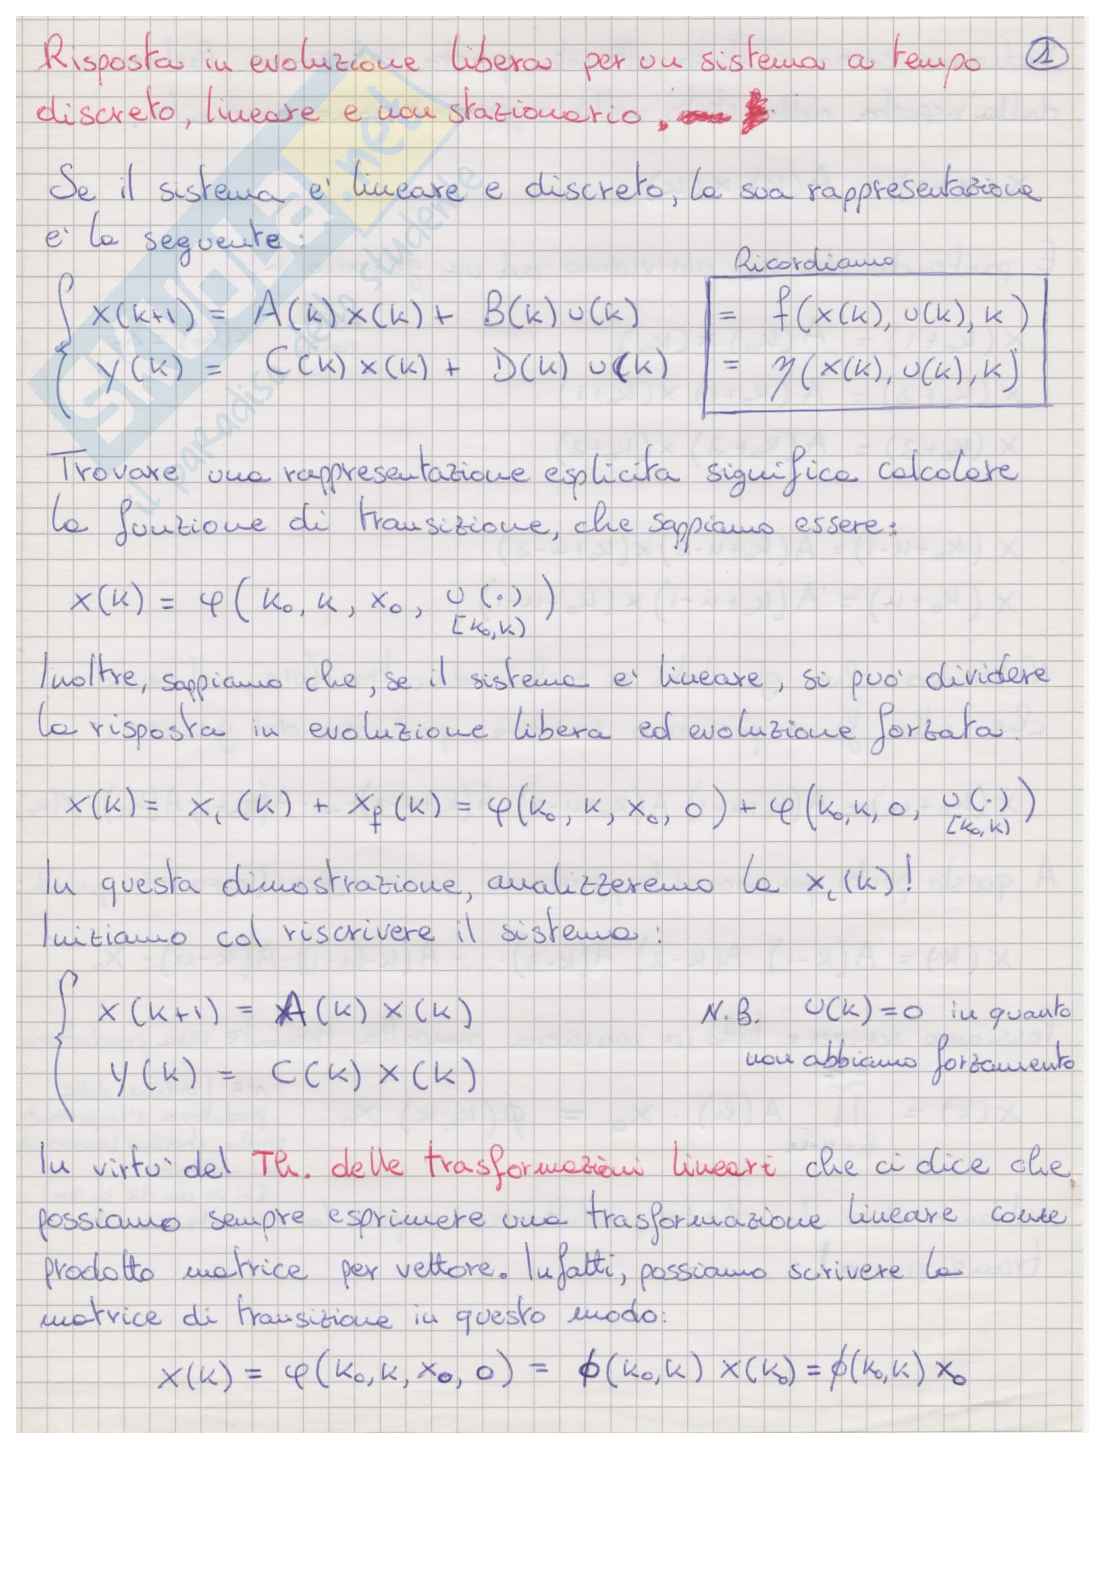 Risposta in evoluzione libera per un sistema a tempo ①
discreto, lineare e non stazionario.
Se il sistema e' lineare e discreto, la sua rappresentazione
e' la seguente:
Ricordiamo
x(k+1) = A(k) x(k) + B(k) u(k) = f(x(k), u(k), k)
y(k) = C(k) x(k) + D(k) u(k) = η(x(k), u(k), k)
Trovare una rappresentazione esplicita significa calcolare
la funzione di transizione, che sappiamo essere:
x(k) = φ(k₀, k, x₀, u(·))
[k₀,k)
Inoltre, sappiamo che, se il sistema e' lineare, si puo' dividere
la risposta in evoluzione libera ed evoluzione forzata.
x(k) = x_l(k) + x_f(k) = φ(k₀, k, x₀, 0) + φ(k₀,k,0, u(·))
[k₀,k)
In questa dimostrazione, analizzeremo la x_l(k)!
Iniziamo col riscrivere il sistema:
x(k+1) = A(k) x(k) N.B. u(k)=0 in quanto
y(k) = C(k) x(k) non abbiamo forzamento
In virtu' del Th. delle trasformazioni lineari che ci dice che
possiamo sempre esprimere una trasformazione lineare come
prodotto matrice per vettore. Infatti, possiamo scrivere la
matrice di transizione in questo modo:
x(k) = φ(k₀,k,x₀,0) = ϕ(k₀,k) x(k₀) = ϕ(k₀,k) x₀
SKUOLA.net
il paradiso dello studente